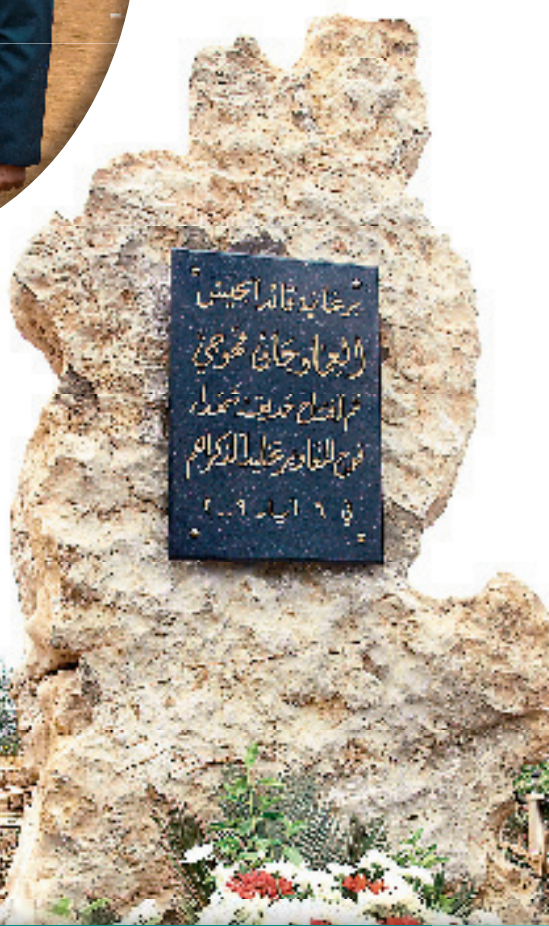 برعاية قائد الجيش
العماد جان قهوجي
تم افتتاح حديقة شهداء
فوج المغاوير تخليداً لذكراهم
في ٦ أيار ٢٠٠٩